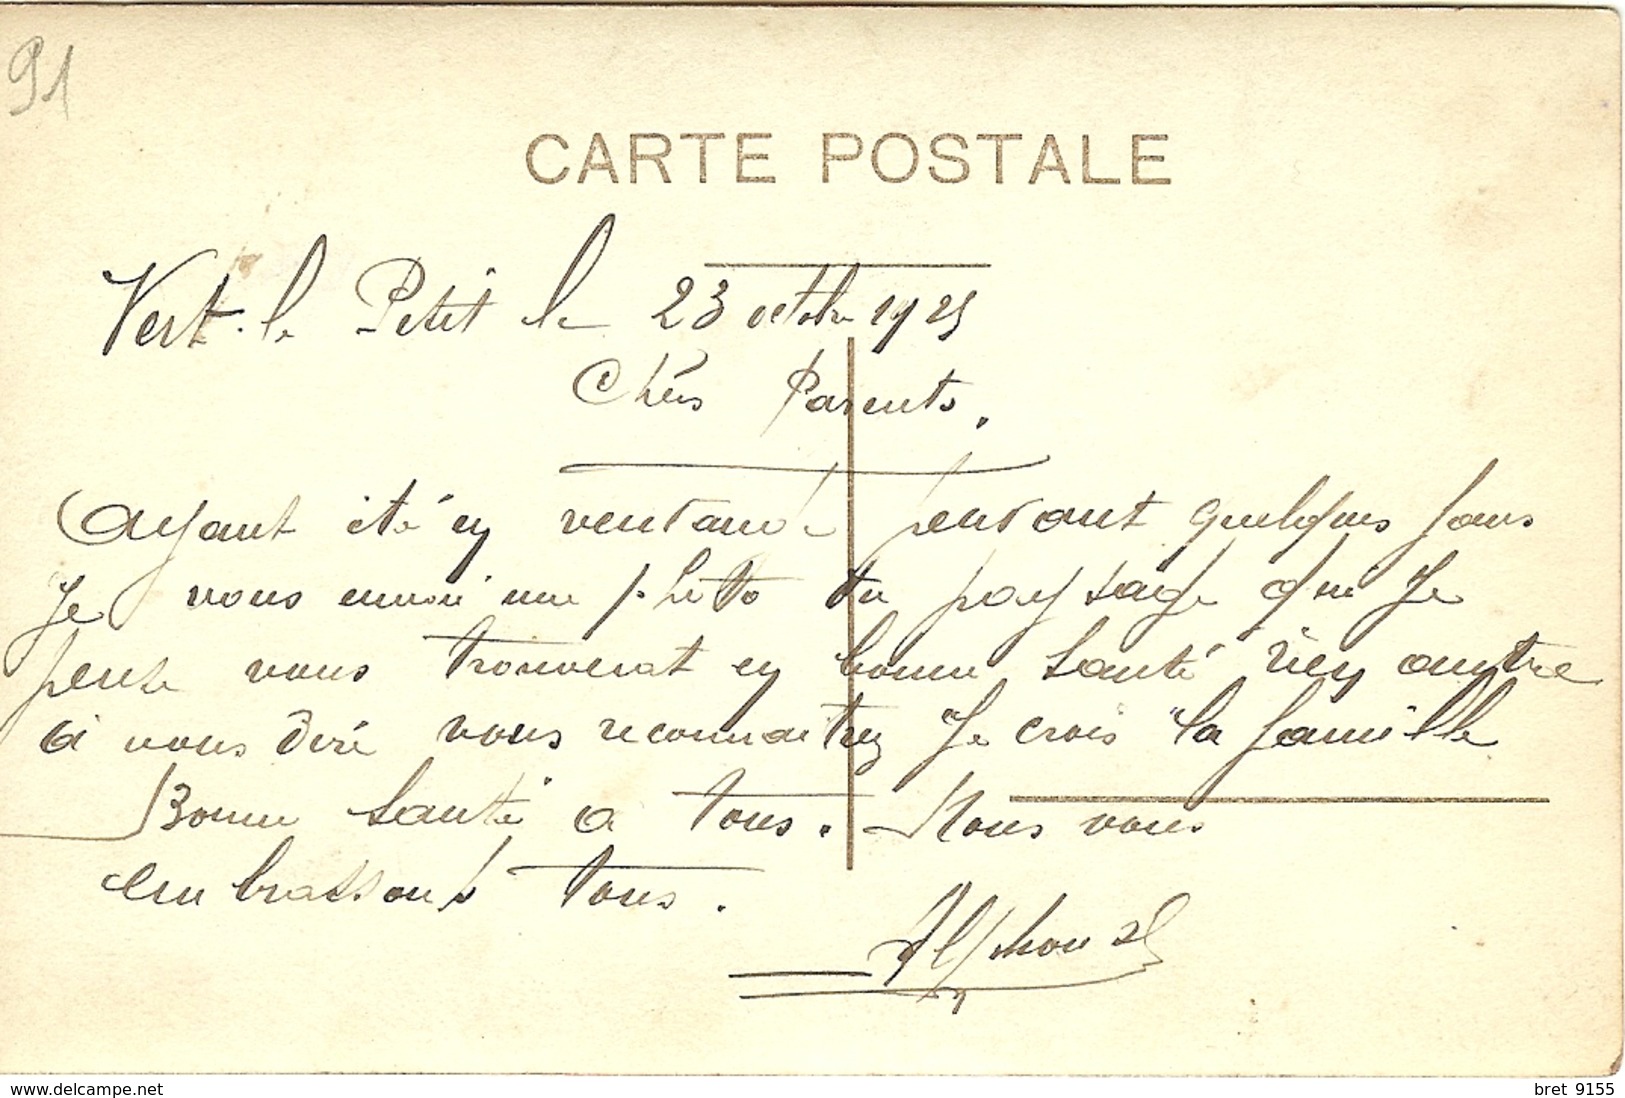 91
CARTE POSTALE
Vert-le Petit le 23 octobre 1925
Chérs Parents,
Ayant été en vendande pendant quelques jours
Je vous envoi une photo du paysage qui Je
pense vous trouverat en bonne santé rien autre
a vous diré vous reconnaitrez Je crois la famille
Bonne santé a tous. Nous vous
embrassons tous.
Alphonse
www.delcampe.net
bret 9155